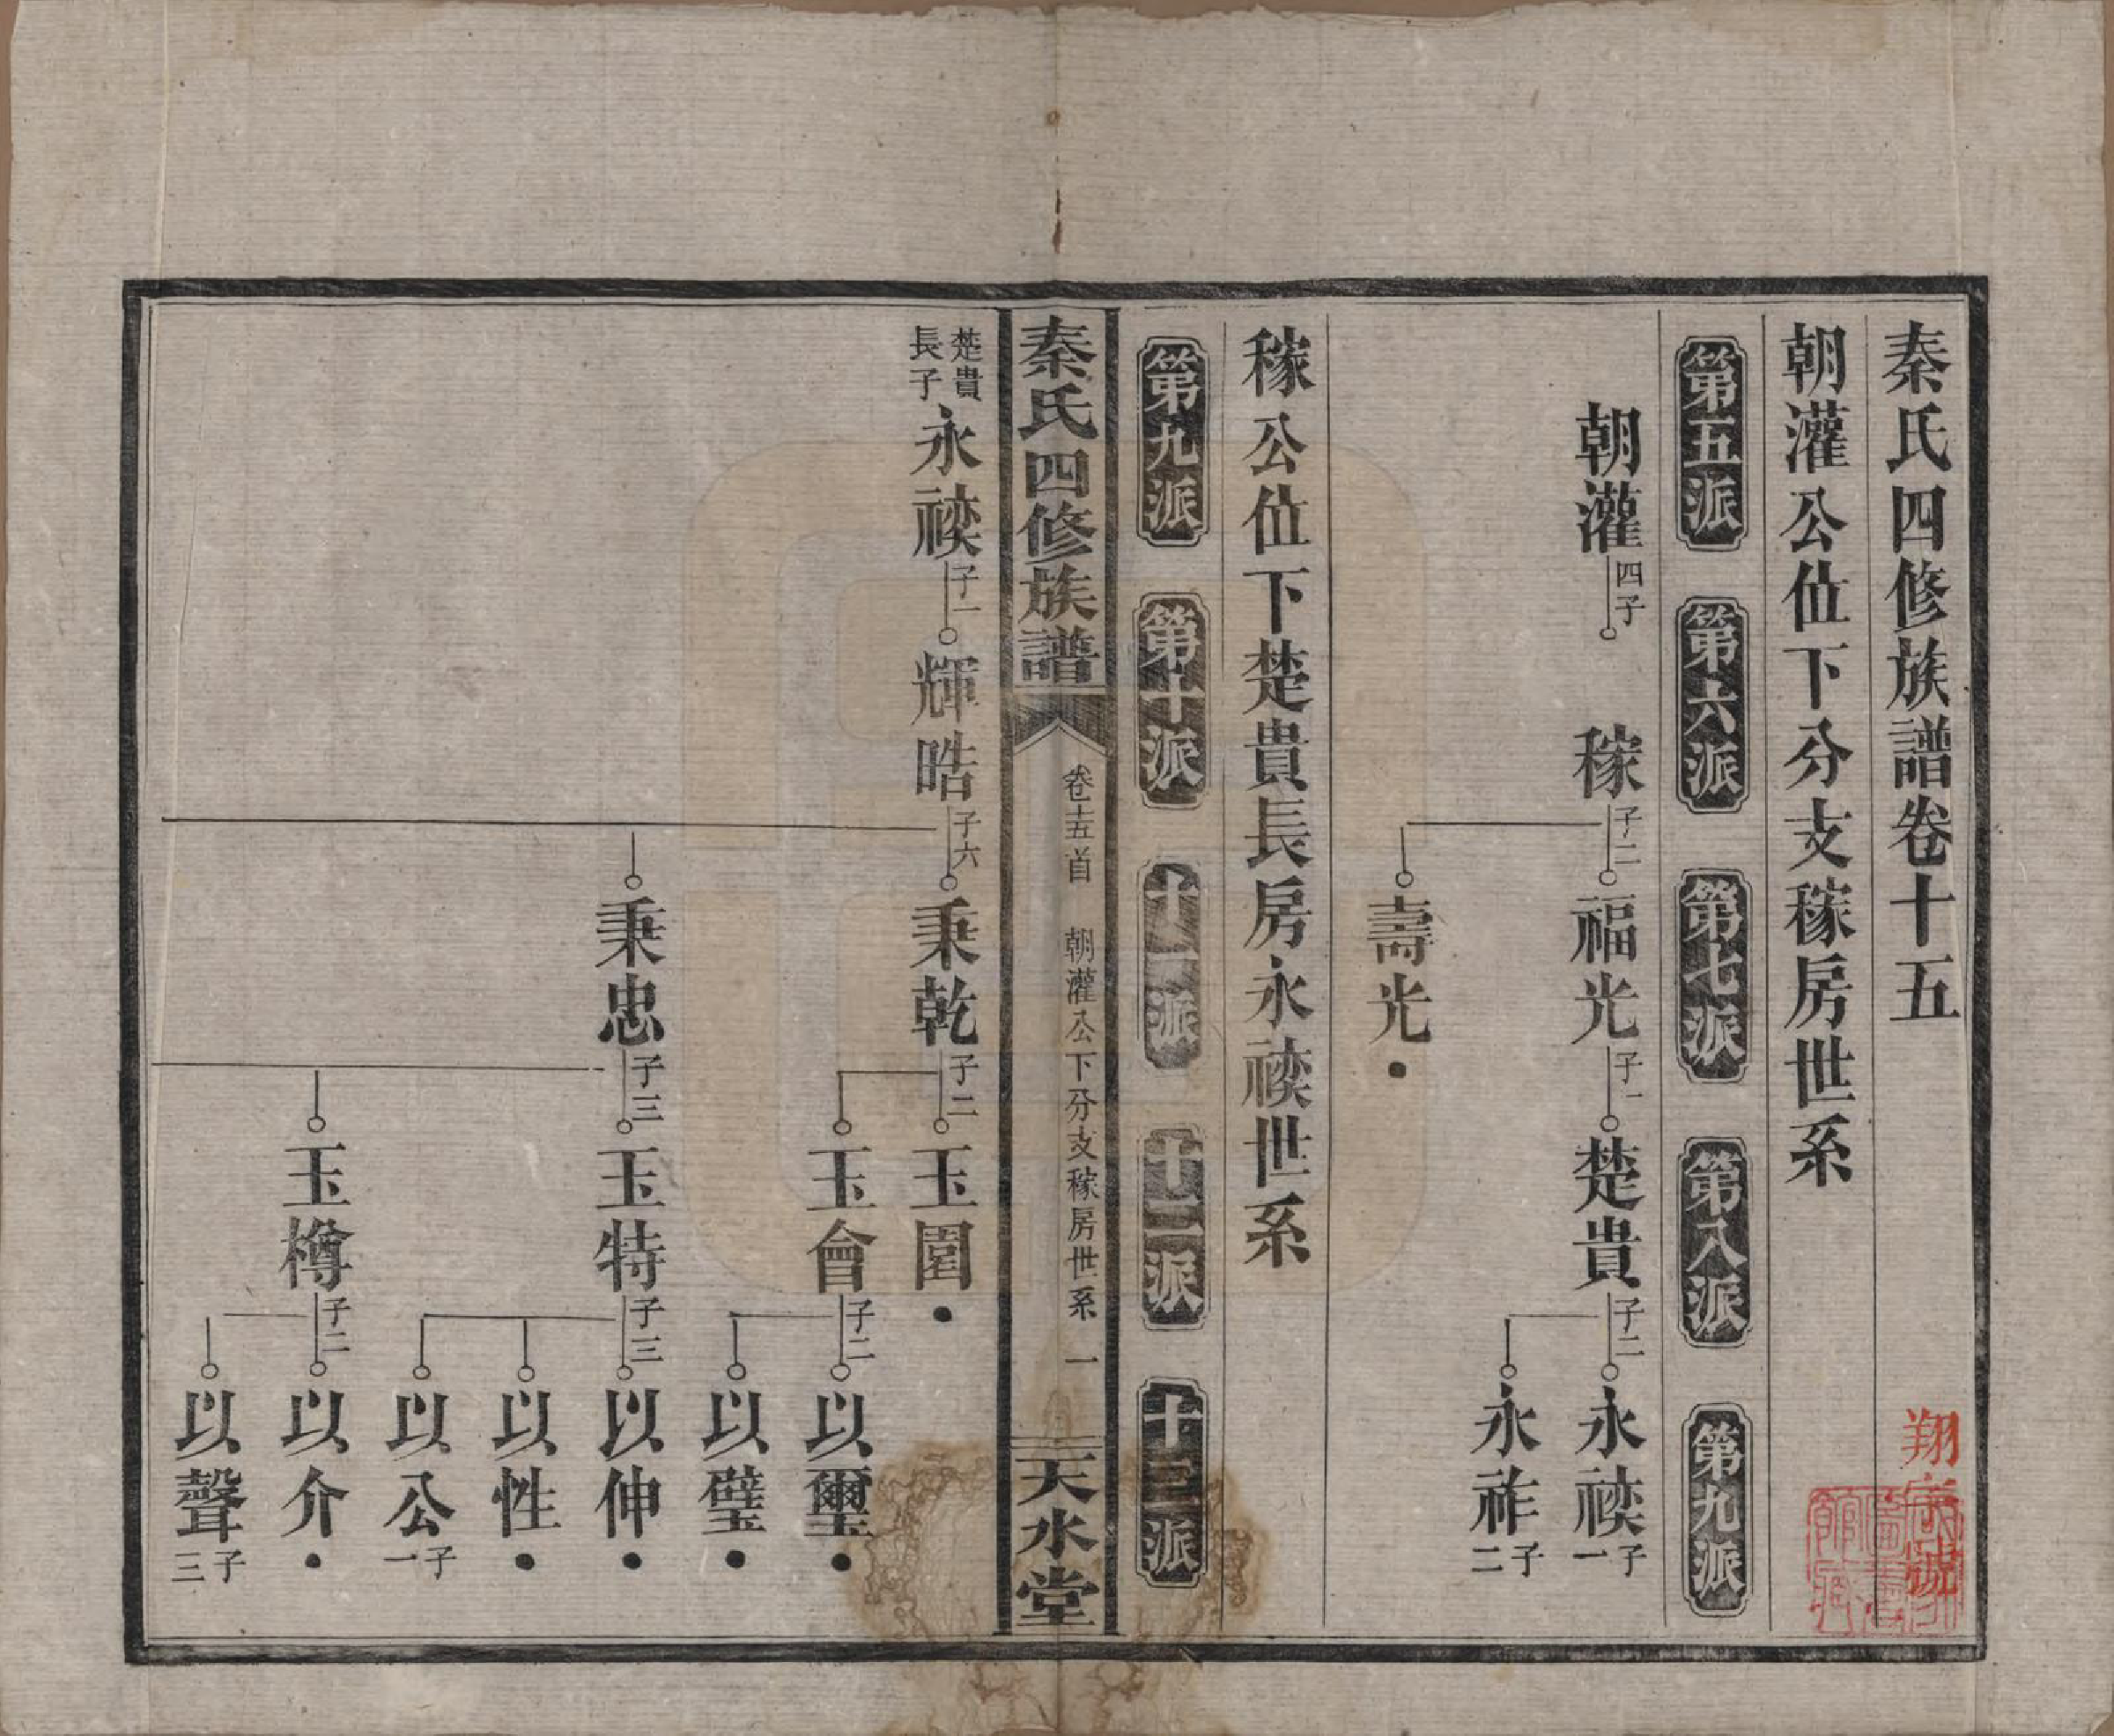 秦氏四修族譜卷十五
朝灌公位下分支稼房世系
第五派 第六派 第七派 第八派 第九派
朝灌 四子 稼 子二 福光 子一 楚貴 子二 永禊 子一
永祚 子二
壽光
稼公位下楚貴長房永禊世系
第九派 第十派 十一派 十二派 十三派
秦氏四修族譜 卷十五首 朝灌公下分支稼房世系 一 天水堂
楚貴長子 永禊 子一 輝晧 子六 秉乾 子二 玉圍
玉會 子二 以璽
以璧
秉忠 子三 玉特 子三 以伸
以性
以公 子一
玉樽 子二 以介
以聲 子三